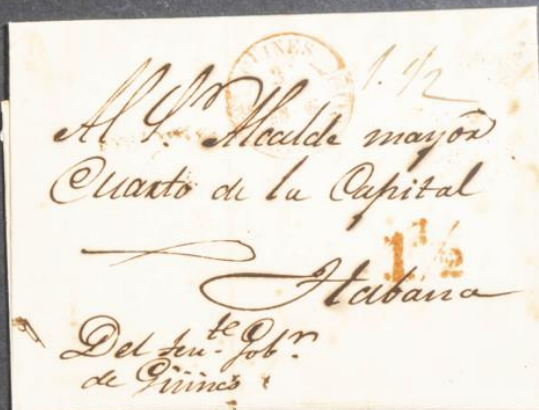 GÜINES
1. 1/2
Al S.ʳ Alcalde mayor
Cuarto de la Capital
1 1/2
Habana
Del Ten.te Gob.r
de Güines